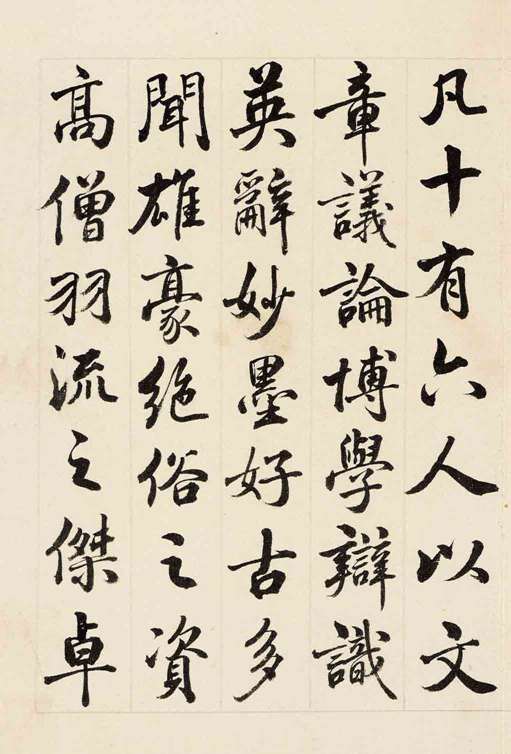 凡十有六人以文
章議論博學辯識
英辭妙墨好古多
聞雄豪絶俗之資
高僧羽流之傑卓